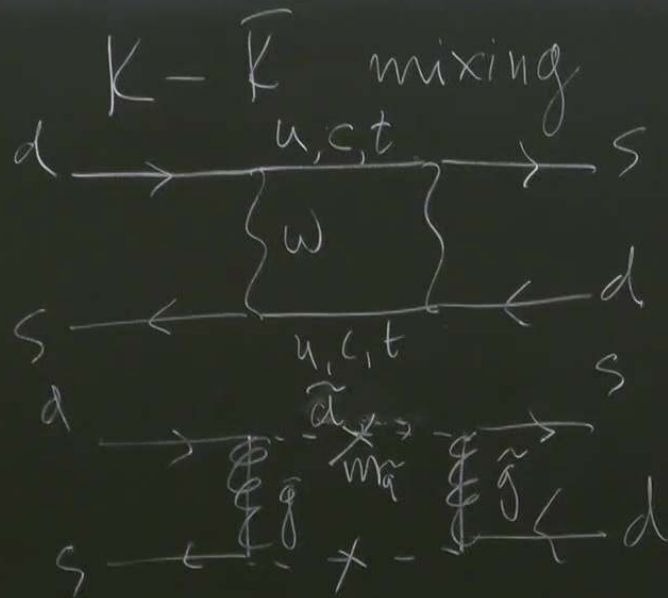 K - K̅ mixing
d u, c, t s
W
s u, c, t d
d d̃ s
m_q̃
g̃ g̃
s d